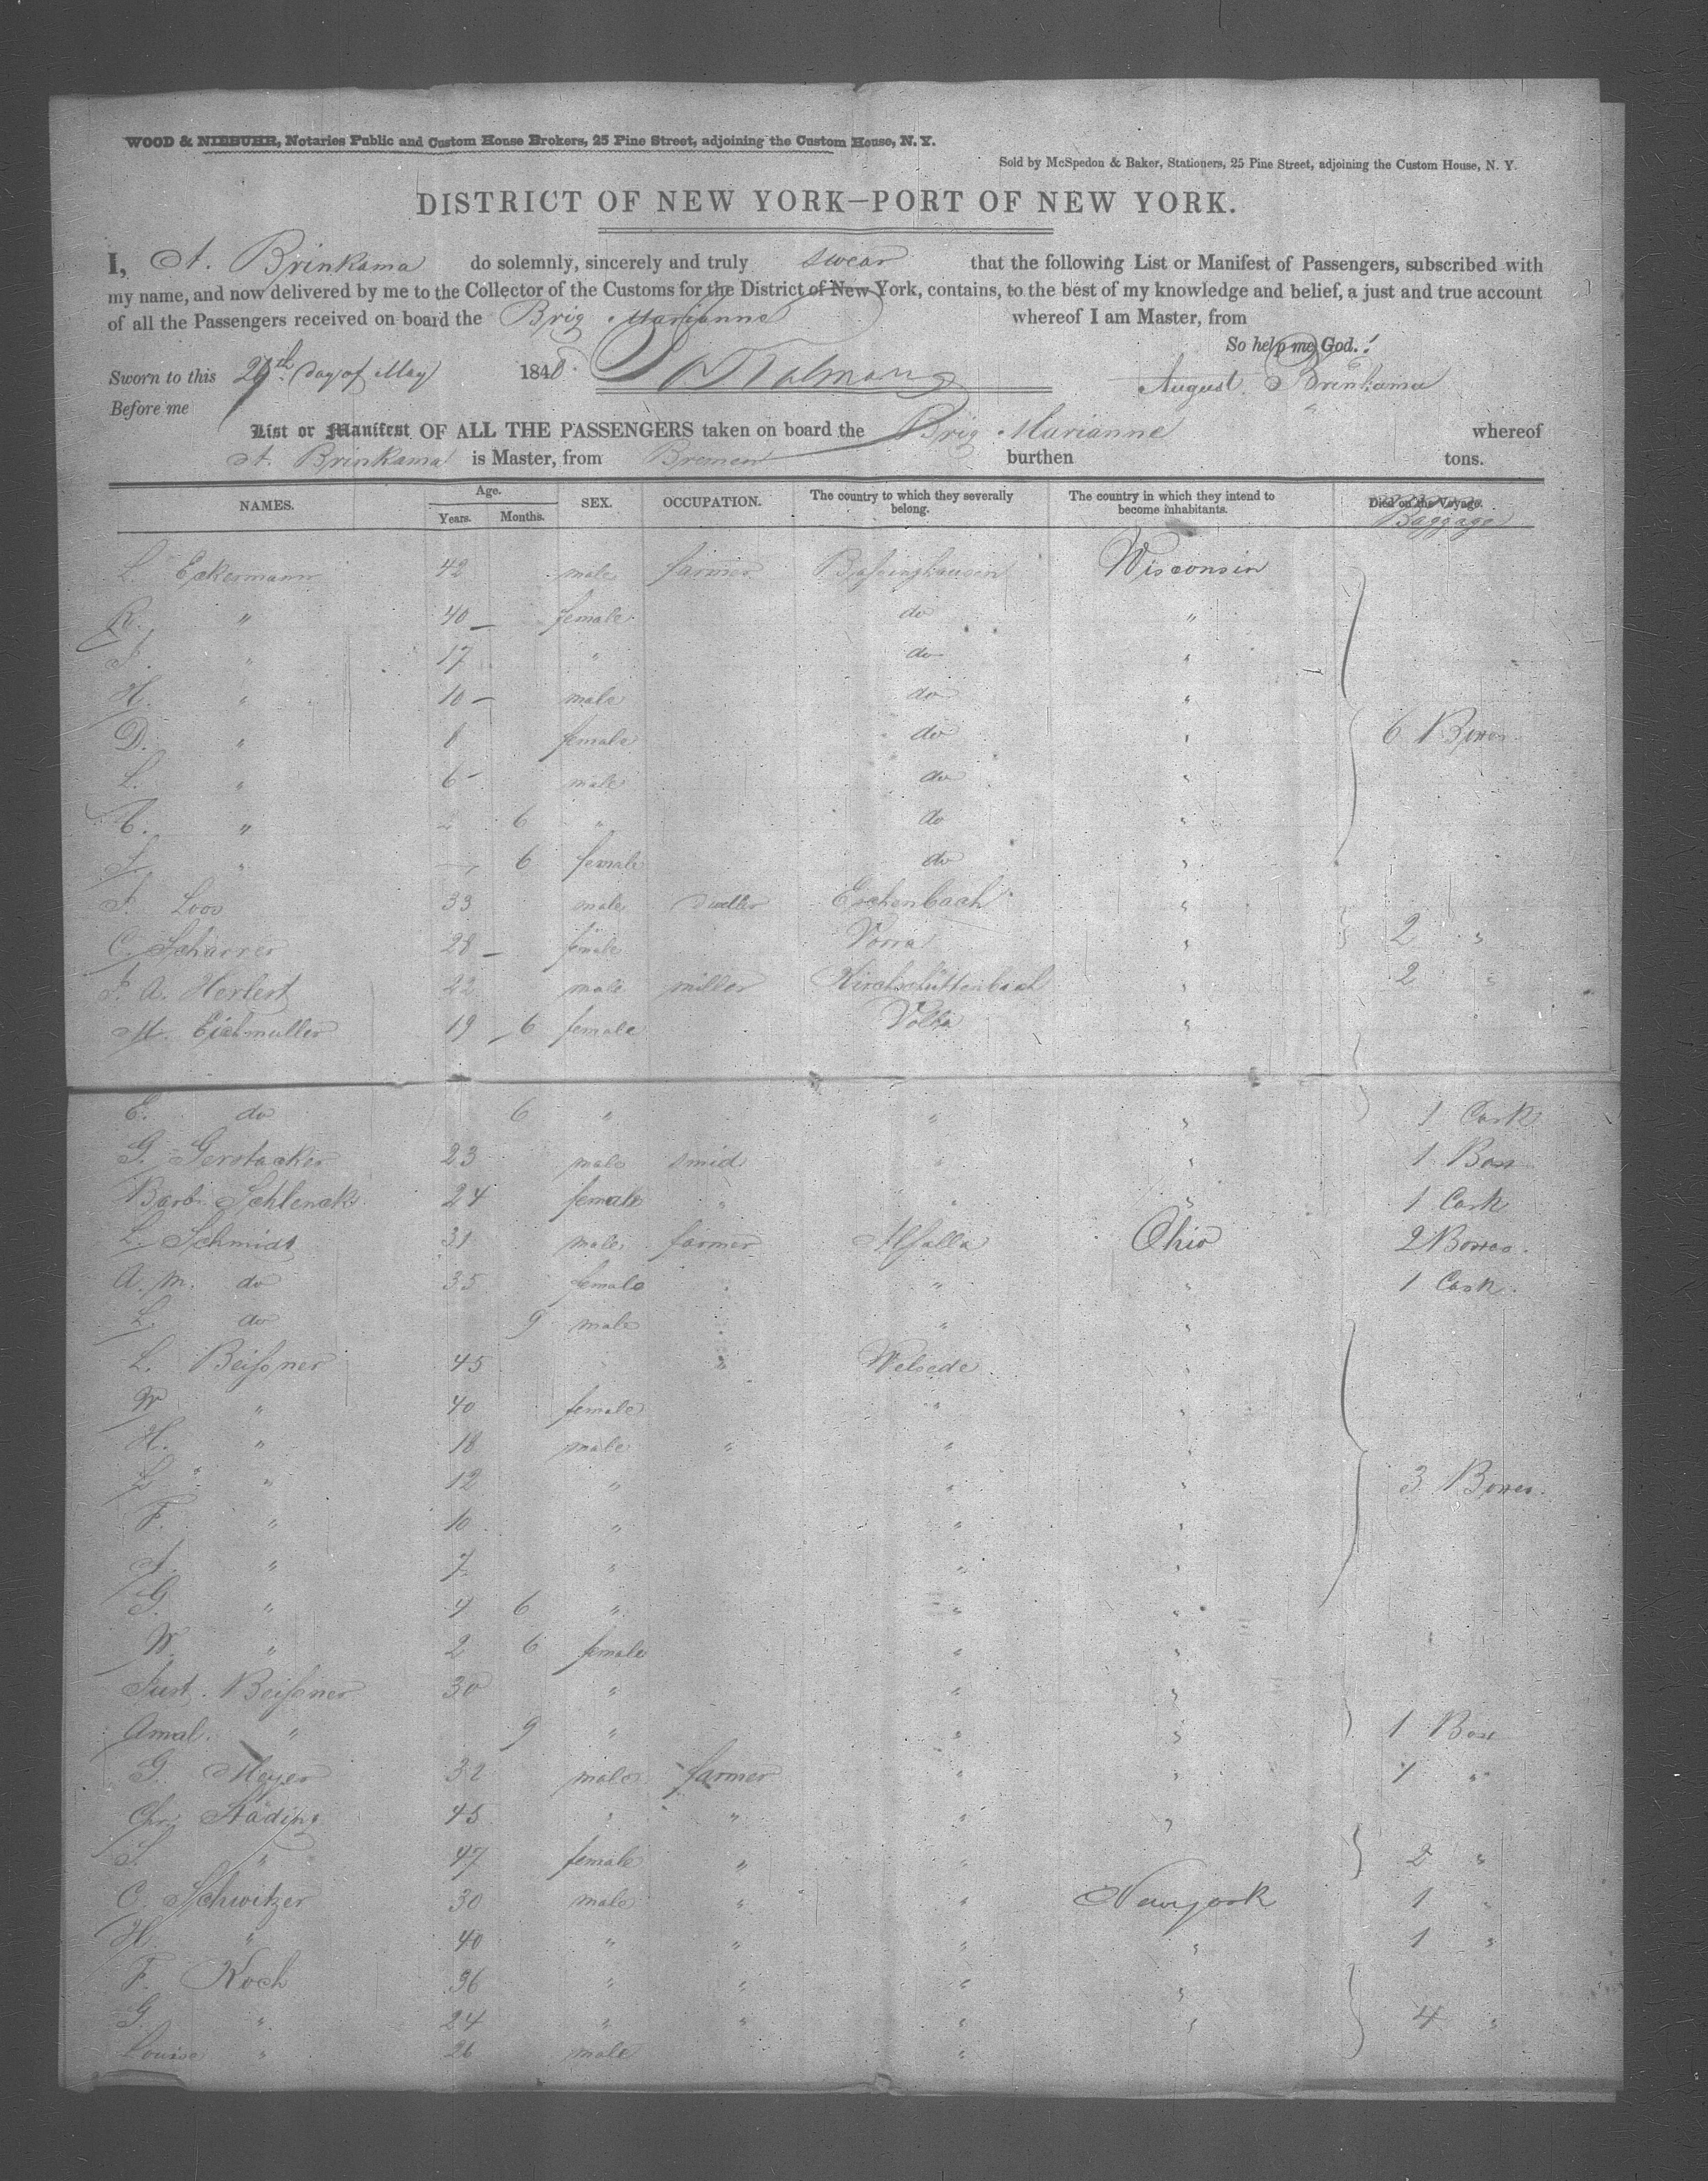 WOOD & NIEBUHR, Notaries Public and Custom House Brokers, 25 Pine Street, adjoining the Custom House, N. Y.
Sold by McSpedon & Baker, Stationers, 25 Pine Street, adjoining the Custom House, N. Y.
DISTRICT OF NEW YORK—PORT OF NEW YORK.
I, A. Brinkama do solemnly, sincerely and truly swear that the following List or Manifest of Passengers, subscribed with
my name, and now delivered by me to the Collector of the Customs for the District of New York, contains, to the best of my knowledge and belief, a just and true account
of all the Passengers received on board the Brig Marianne whereof I am Master, from
So help me God.!
Sworn to this 29th day of May 1848. August Brinkama
Before me
List or Manifest OF ALL THE PASSENGERS taken on board the Brig Marianne whereof
A. Brinkama is Master, from Bremen burthen tons.
NAMES. Age. Years. Months. SEX. OCCUPATION. The country to which they severally belong. The country in which they intend to become inhabitants. Died on the Voyage.
Baggage
L. Eckermann 42 male farmer Bassinghausen Wisconsin
R. " 40 – female do "
J. " 17 " do "
H. " 10 – male do "
D. " 8 female do " 6 Boxes
L. " 6 – male do "
C. " 2 6 " do "
S. " — 6 female do "
J. Loos 33 male Eschenbach "
C. Scharrer 28 – female Vorra " 2 "
J. A. Herlert 22 male miller " 2 "
M. Eichmuller 19 6 female "
E. do 6 " " " 1 Cask
G. Gerstacker 23 male smid " " 1 Box
Barb. Schlenck 24 female " " " 1 Cask
L. Schmidt 31 male farmer Alfalla Ohio 2 Boxes.
A. M. do 35 female " " " 1 Cask.
L. do 9 male " "
L. Beißner 45 " Welsede "
W " 40 female " "
H. " 18 male " " "
L " 12 " " " 3 Boxes.
F. " 10 " " "
A. " 7 " " "
G. " 4 6 " " "
W. " 2 6 female " "
Just. Beißner 30 " " "
Amal. " 9 " " " 1 Box
G. Meyer 32 male farmer " " 1 "
Chr. Städing 45 " " " "
S. " 47 female " " 2 "
C. Schwitzer 30 male " " Newyork 1 "
H. " 40 " " " " 1 "
F. Koch 36 " " " "
G. " 24 " " " " 4 "
Louise " 26 male "